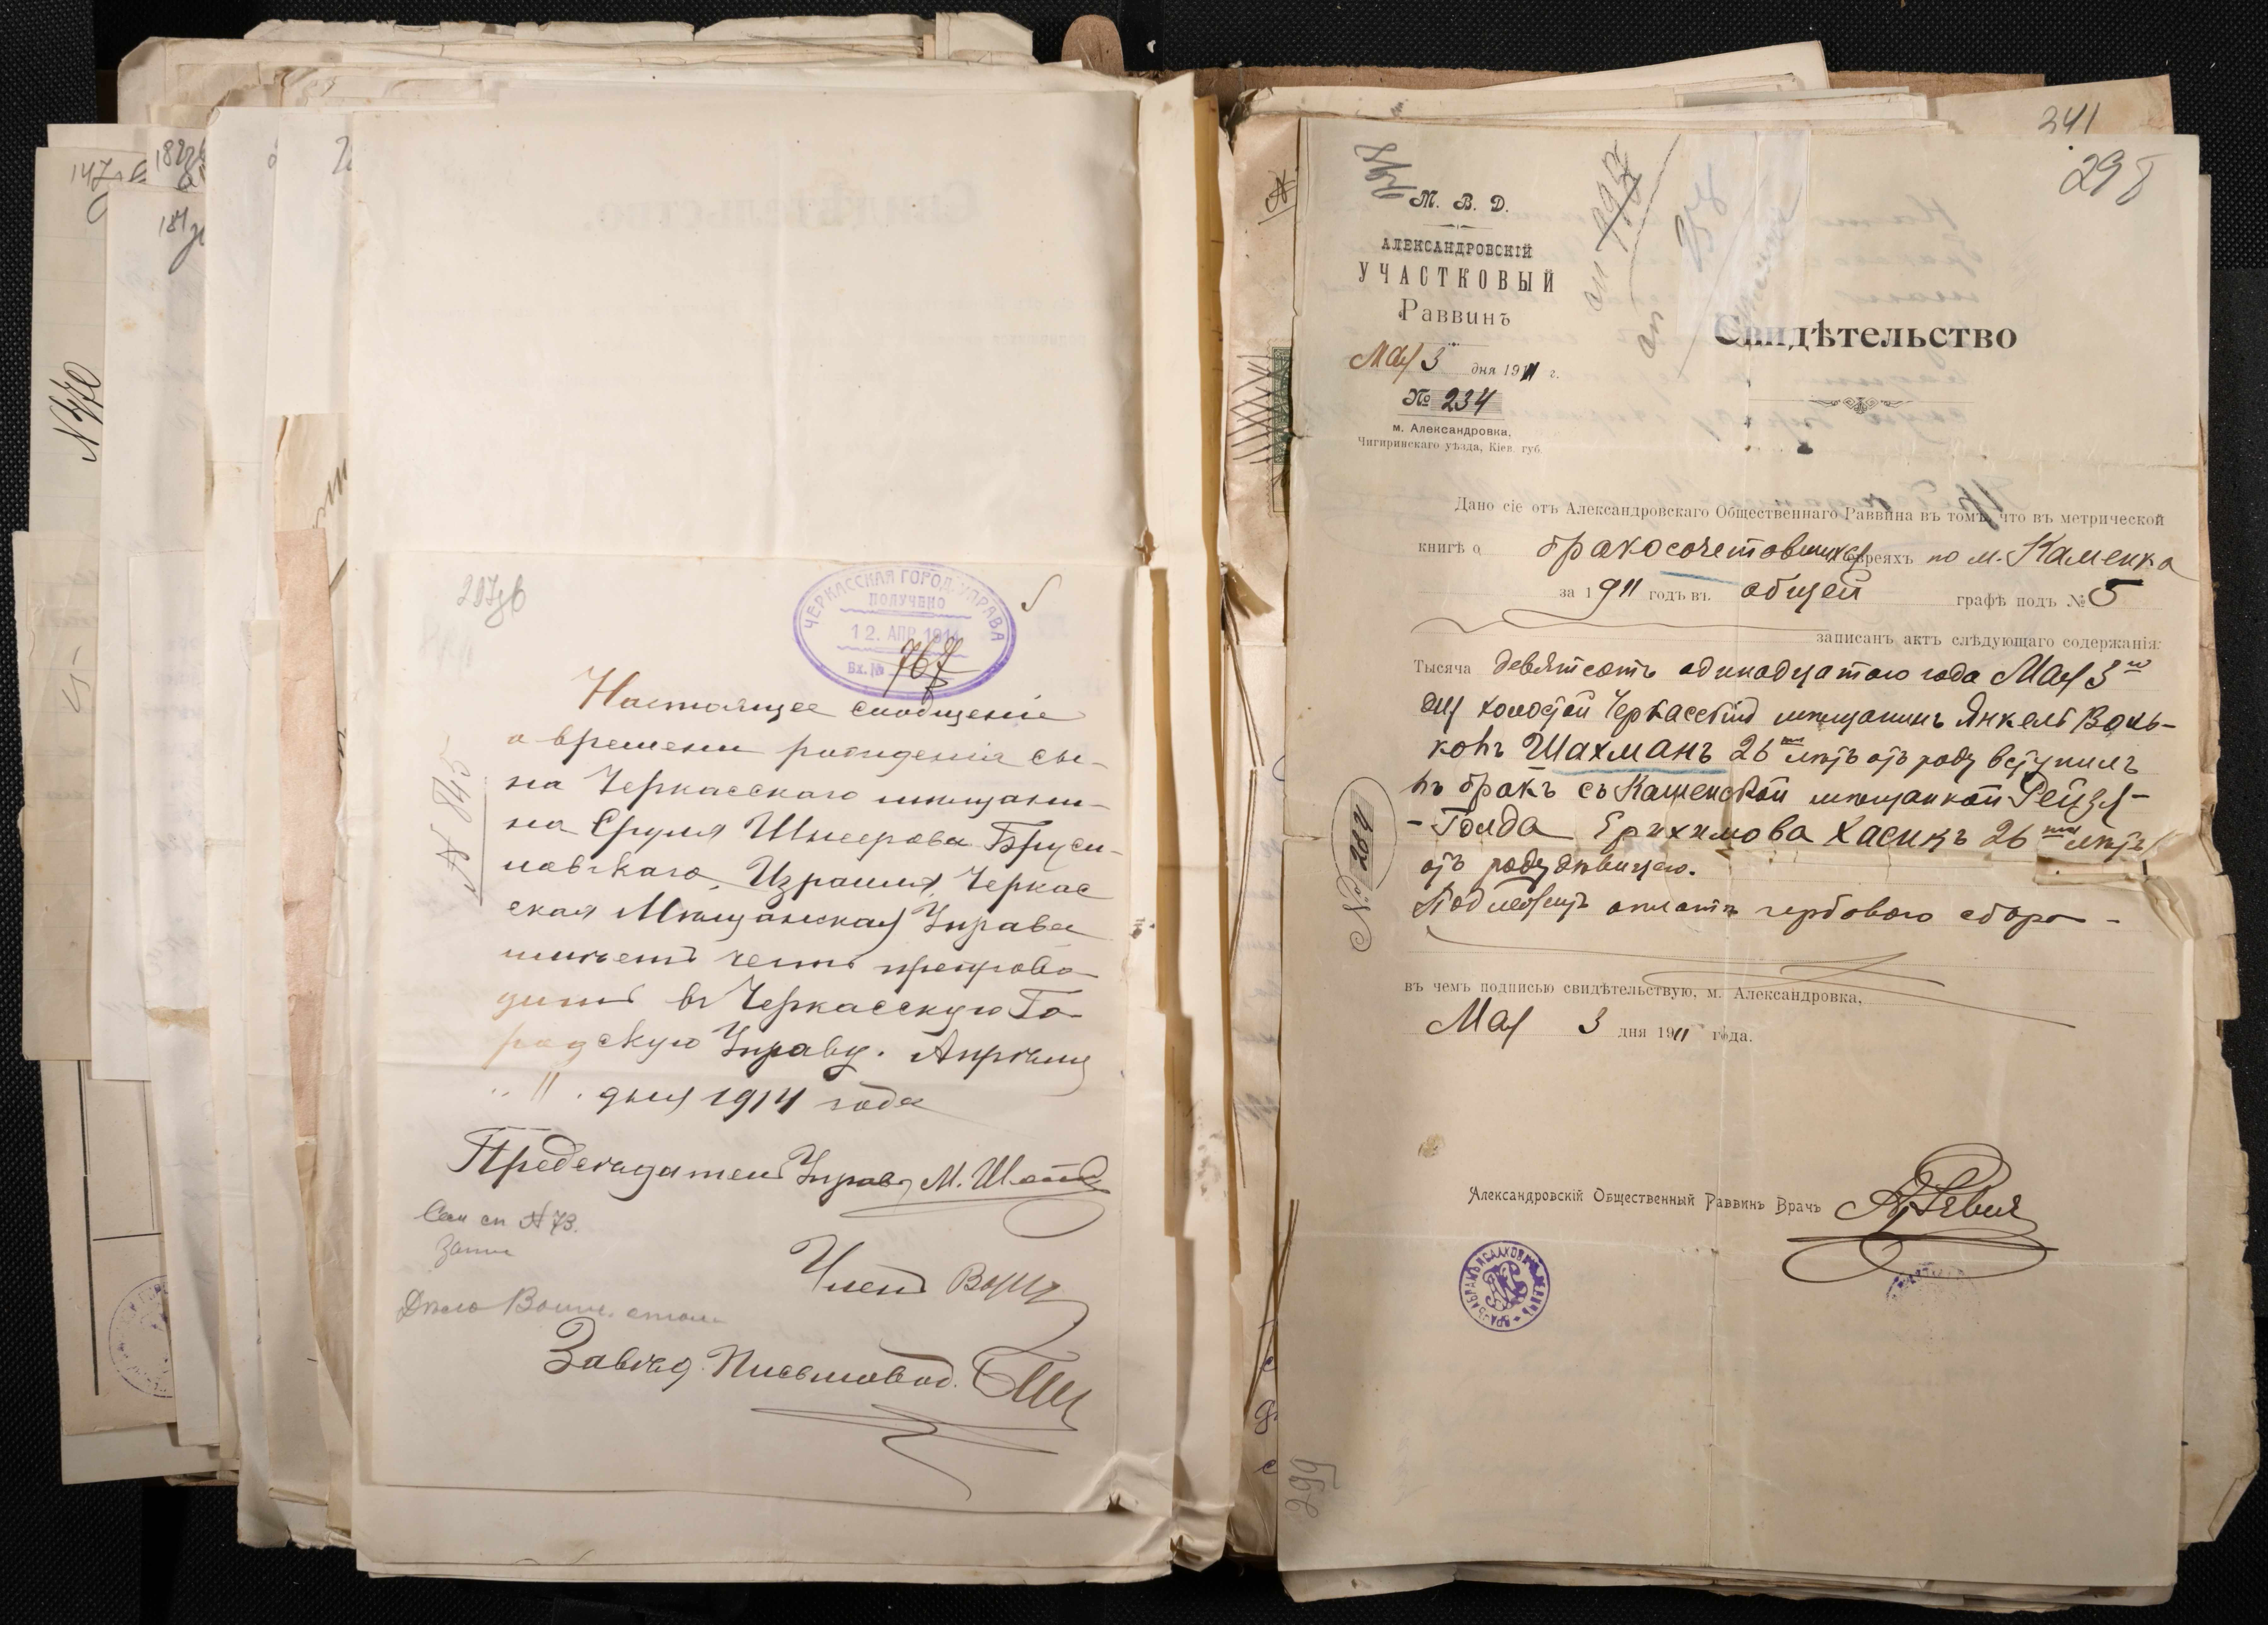 147
182
181
N 770
207 об
ЧЕРКАССКАЯ ГОРОД. УПРАВА
ПОЛУЧЕНО
12. АПР. 1914
Вх. №
767
N 845
Настоящее сообщеніе
о времени рожденія сы-
на Черкасскаго мѣщани-
на Сруля Шмерова Бруси-
ловскаго, Израиля, Черкас
ская Мѣщанская Управа
имѣетъ честь препрово-
дить въ Черкасскую Го-
родскую Управу. Апрѣля
"11" дня 1914 года
Предсѣдатель Управы М.
Сем сп N 73.
Членъ
Дѣло Воин. стола
Завѣд. Письмовод.
241
298
М. В. Д.
АЛЕКСАНДРОВСКІЙ
УЧАСТКОВЫЙ
Раввинъ
Мая 3 дня 1911 г.
№ 234
м. Александровка,
Чигиринскаго уѣзда, Кіев. губ.
Свидѣтельство
Дано сіе отъ Александровскаго Общественнаго Раввина въ томъ, что въ метрической
книгѣ о бракосочетавшихся евреяхъ по м. Каменка
за 1911 годъ въ общей графѣ подъ № 5
записанъ актъ слѣдующаго содержанія:
Тысяча девятсотъ одинадцатаго года Мая 3го
дня холостой Черкасскій мѣщанинъ Янкель Воль-
ковъ Шахманъ 26ти лѣтъ отъ роду вступилъ
въ бракъ съ Каменской мѣщанкой Рейзя-
-Голда Ерихимова Хасикъ 26ти лѣтъ
отъ роду дѣвицею.
Подлежитъ оплатѣ гербоваго сбора -
№ 282
въ чемъ подписью свидѣтельствую, м. Александровка,
Мая 3 дня 1911 года.
Александровскій Общественный Раввинъ Врачъ
299